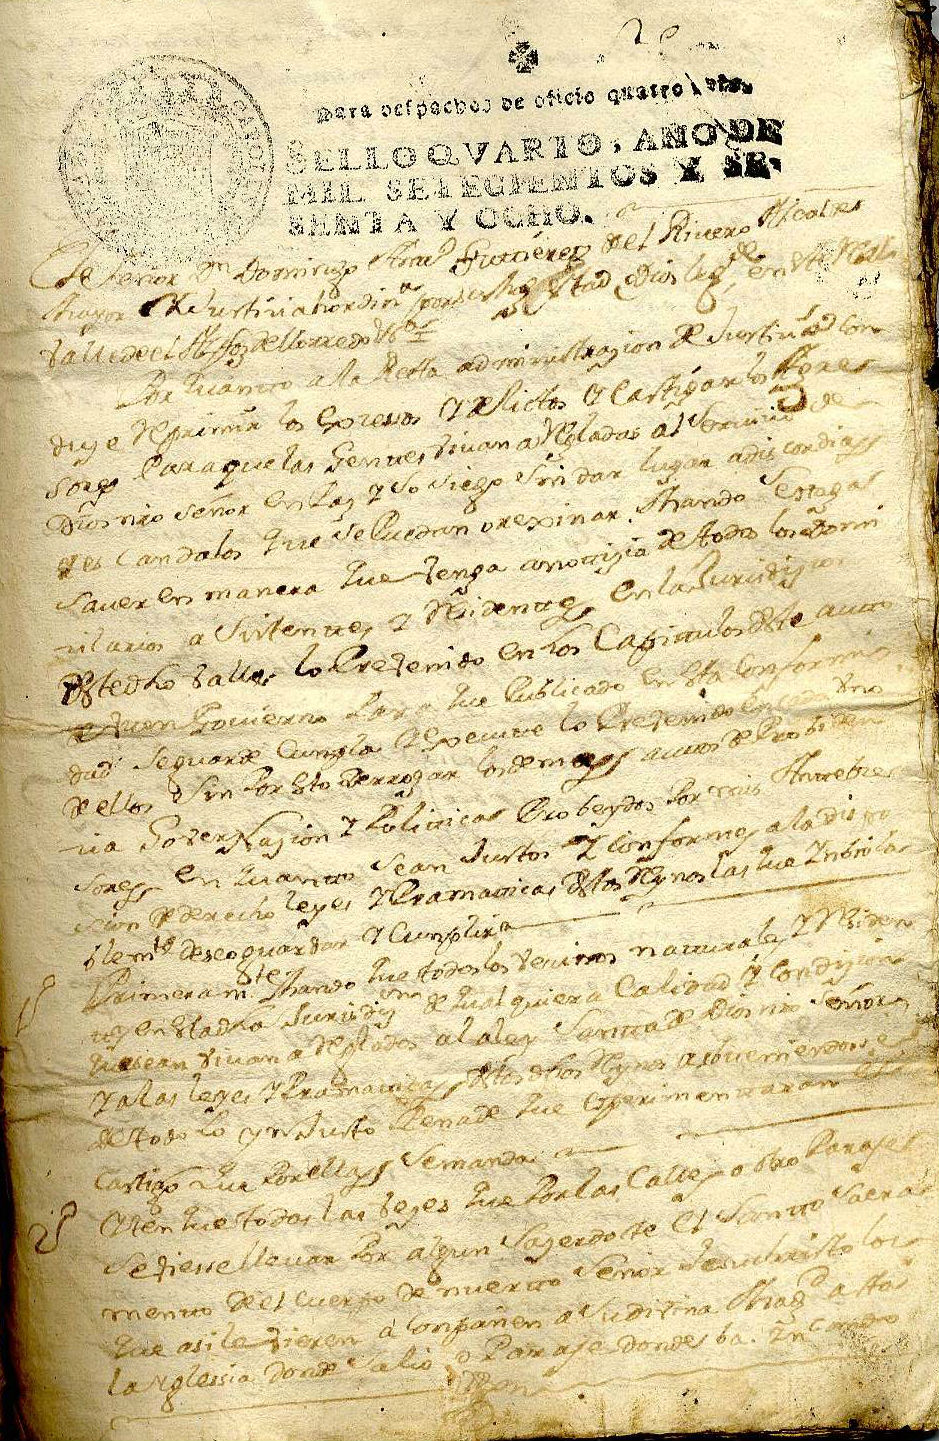 Para despachos de oficio quatro mrs.
SELLO QVARTO, AÑO DE
MIL SETECIENTOS Y SE-
SENTA Y OCHO.
El Señor Dn Domingo Gutiérrez del Rivero Alcalde
mayor Justicia hordina por su Magestad Dios le gde en este
Valle
Por quanto a la Recta administrazion de Justicia
dirije Reprimir los expesos y delictos y Castigar los
sores Para que las Gentes vivan arregladas al Servicio de
Dios nro Señor en Paz y Sosiego Sin dar lugar a discordias
y escandalos que se Puedan orexinar. Mando Se haga
saver en manera que venga a notizia de todos los domi
ziliarios asistentes y Residentes en la Jurisdizion
deste dho valle lo Prevenido en los Capitulos deste auto
de buen Govierno Para que Publicado en esta conformi
dad se guarde Cumpla y execute lo Prevenido en cada uno
de ellos Sin Por esto Derrogar los demas autos de Probiden
zia Governazion y Politicas Probeydos Por mis Antece
sores en quanto Sean Justos y Conformes a la dispo
sicion de derecho leyes y Pramaticas destos Reynos las que
se guardar y Cumplir
1 Primeramte Mando que todos los vecinos naturales y Residen
tes en esta dha Jurisdizn de qualquiera Calidad y Condizion
que sean vivan arreglados a la ley Santa de Dios nro Señor
y a las leyes y Pragmaticas destos dhos Reynos
de todo lo ynjusto Pena de que esperimentaran el
Castigo que Por ellas Se manda
2 Yten que todas las vezes que Por las Calles o otro Paraje
Se viesse llevar Por algun Sazerdote el Santto Sacra
mento del Cuerpo de nuestro Señor Jesuchristo los
que asi le vieren aconpañen a Su divina Magd asta
la Yglessia donde Salio o Paraje donde ba.